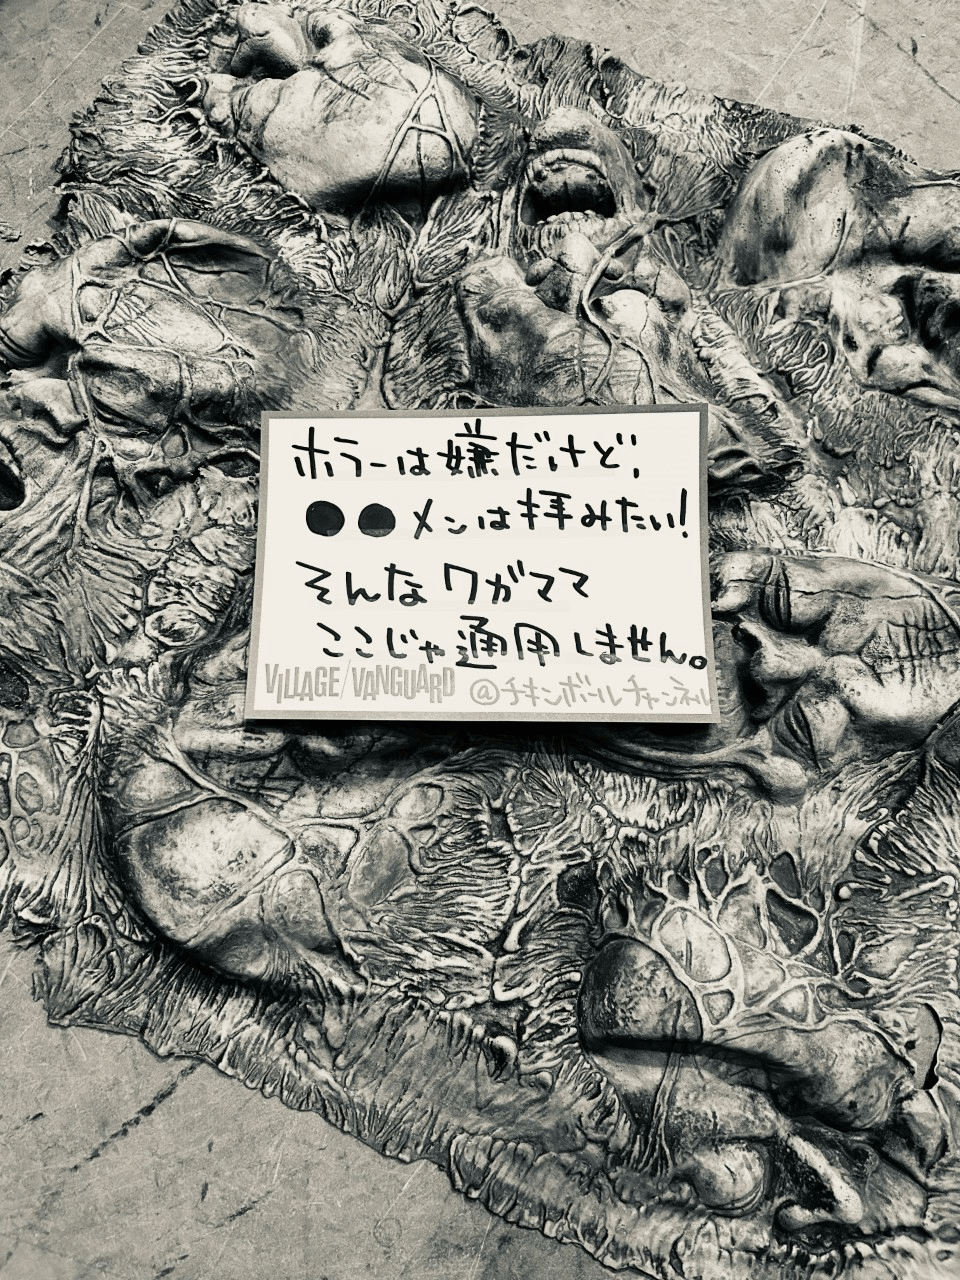 ホラーは嫌だけど、
●●メンは拝みたい!
そんなワガママ
ここじゃ通用しません。
VILLAGE/VANGUARD @チキンボールチャンネル